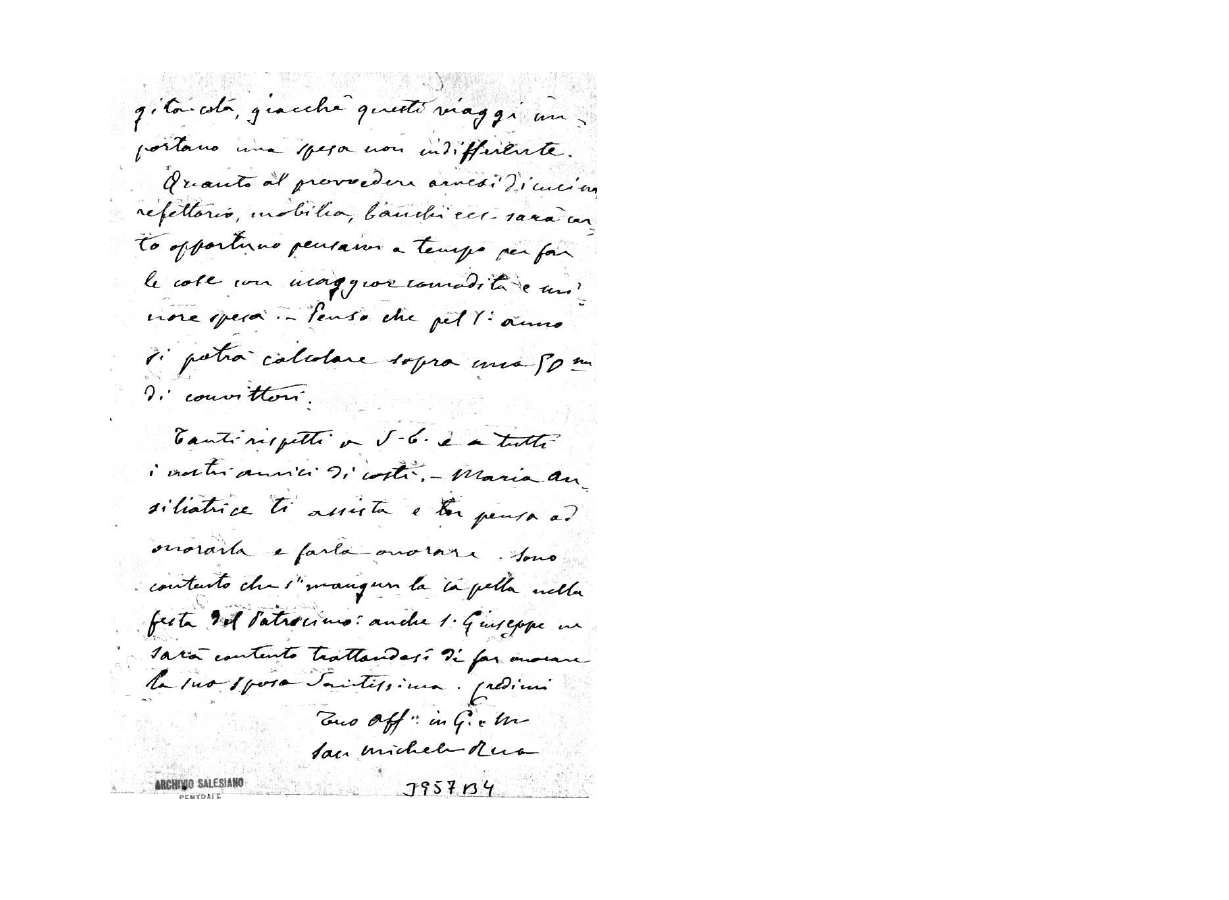 gita colà, giacchè questi viaggi im-
portano una spesa non indifferente.
Quanto al provvedere arnesi di cucina
refettorio, mobilia, banchi ecc. sarà cer-
to opportuno pensarvi a tempo per far
le cose con maggior comodità e mi-
nore spesa. - Penso che pel 1.° anno
si potrà calcolare sopra una 50.na
di convittori.
Tanti rispetti a S. E. e a tutti
i nostri amici di costì. - Maria Au-
siliatrice ti assista e tu pensa ad
onorarla e farla onorare. Sono
contento che s'inauguri la capella nella
festa del Patrocinio: anche S. Giuseppe ne
sarà contento trattandosi di far onorare
la sua sposa Santissima. Credimi
Tuo Aff.° in G. e M.
Sac. Michele Rua
ARCHIVIO SALESIANO
CENTRALE
3957 B4